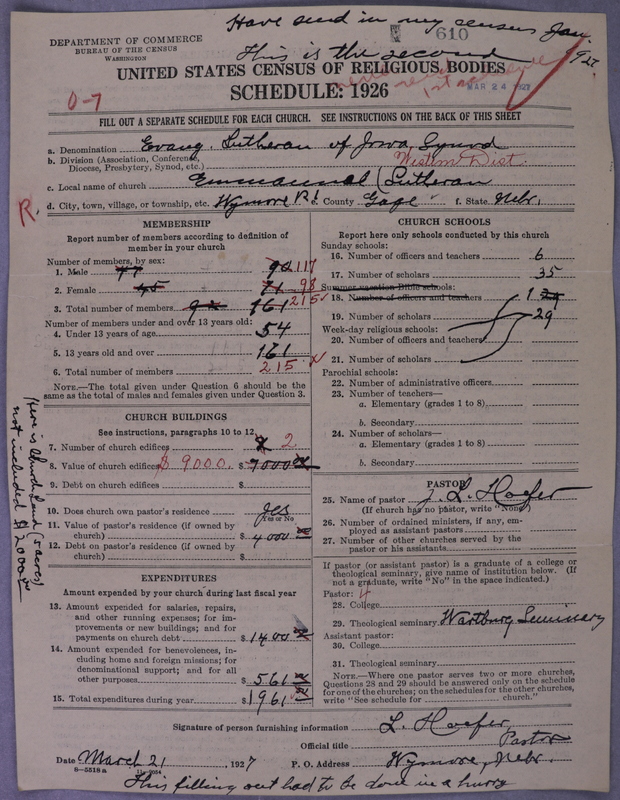 Have send in my census Jan. 1927
DEPARTMENT OF COMMERCE
BUREAU OF THE CENSUS
WASHINGTON
610
This is the second
UNITED STATES CENSUS OF RELIGIOUS BODIES
SCHEDULE: 1926
MAR 24 1927
0-7
FILL OUT A SEPARATE SCHEDULE FOR EACH CHURCH. SEE INSTRUCTIONS ON THE BACK OF THIS SHEET
a. Denomination Evang. Lutheran of Iowa Synod
b. Division (Association, Conference, Diocese, Presbytery, Synod, etc.) Western Dist.
c. Local name of church Emmanuel (Lutheran
d. City, town, village, or township, etc. Wymore Rd. County Gage f. State Nebr.
R.
MEMBERSHIP
Report number of members according to definition of
member in your church
Number of members, by sex:
1. Male 47 90 117
2. Female 45 71 98
3. Total number of members 92 161 215
Number of members under and over 13 years old:
4. Under 13 years of age 54
5. 13 years old and over 161
6. Total number of members 215
NOTE.—The total given under Question 6 should be the
same as the total of males and females given under Question 3.
CHURCH BUILDINGS
See instructions, paragraphs 10 to 12
7. Number of church edifices 2
8. Value of church edifices $ 9000. $ 7000
9. Debt on church edifices $
10. Does church own pastor's residence yes
Yes or No
11. Value of pastor's residence (if owned by
church) $ 4000
12. Debt on pastor's residence (if owned by
church) $
Here is Church Land (5 acres)
not included $2000
EXPENDITURES
Amount expended by your church during last fiscal year
13. Amount expended for salaries, repairs,
and other running expenses; for im-
provements or new buildings; and for
payments on church debt $ 1400
14. Amount expended for benevolences, in-
cluding home and foreign missions; for
denominational support; and for all
other purposes $ 561
15. Total expenditures during year $ 1961
CHURCH SCHOOLS
Report here only schools conducted by this church
Sunday schools:
16. Number of officers and teachers 6
17. Number of scholars 35
Summer vacation Bible schools:
18. Number of officers and teachers 1 29
19. Number of scholars 29
Week-day religious schools:
20. Number of officers and teachers
21. Number of scholars
Parochial schools:
22. Number of administrative officers
23. Number of teachers—
a. Elementary (grades 1 to 8)
b. Secondary
24. Number of scholars—
a. Elementary (grades 1 to 8)
b. Secondary
PASTOR
25. Name of pastor J. L. Hoefer
(If church has no pastor, write "None")
26. Number of ordained ministers, if any, em-
ployed as assistant pastors
27. Number of other churches served by the
pastor or his assistants
If pastor (or assistant pastor) is a graduate of a college or
theological seminary, give name of institution below. (If
not a graduate, write "No" in the space indicated.)
Pastor: 4
28. College
29. Theological seminary Wartburg Seminary
Assistant pastor:
30. College
31. Theological seminary
NOTE.—Where one pastor serves two or more churches,
Questions 28 and 29 should be answered only on the schedule
for one of the churches; on the schedules for the other churches,
write "See schedule for church."
Signature of person furnishing information L. Hoefer
Official title Pastor
Date March 21, 1927 P. O. Address Wymore, Nebr.
8-5518a 11-9024
This filling out had to be done in a hurry